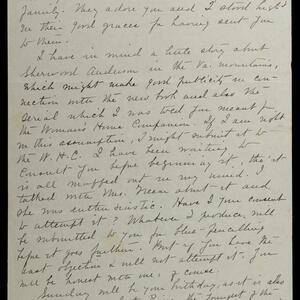 family. They adore you and I stood high
in their good graces for having sent you
to them.
I have in mind a little story about
Sherwood Anderson in the Va. mountains,
which might make good publicity in con-
nection with the new book and also the
serial which I was told you meant for
the Woman's Home Companion. If I am right
in this assumption, I might submit it to
the W.H.C. I have been waiting to
consult you before beginning it, tho' it
is all mapped out in my mind. I
talked with Mrs. about it and
she was enthusiastic. Have I your consent
to attempt it? Whatever I produce will
be submitted to you for blue-pencilling
before it goes further. But if you have the
least objection I will not attempt it. You
will be honest with me, of course.
Sunday will be your birthday, as it is also
the of the